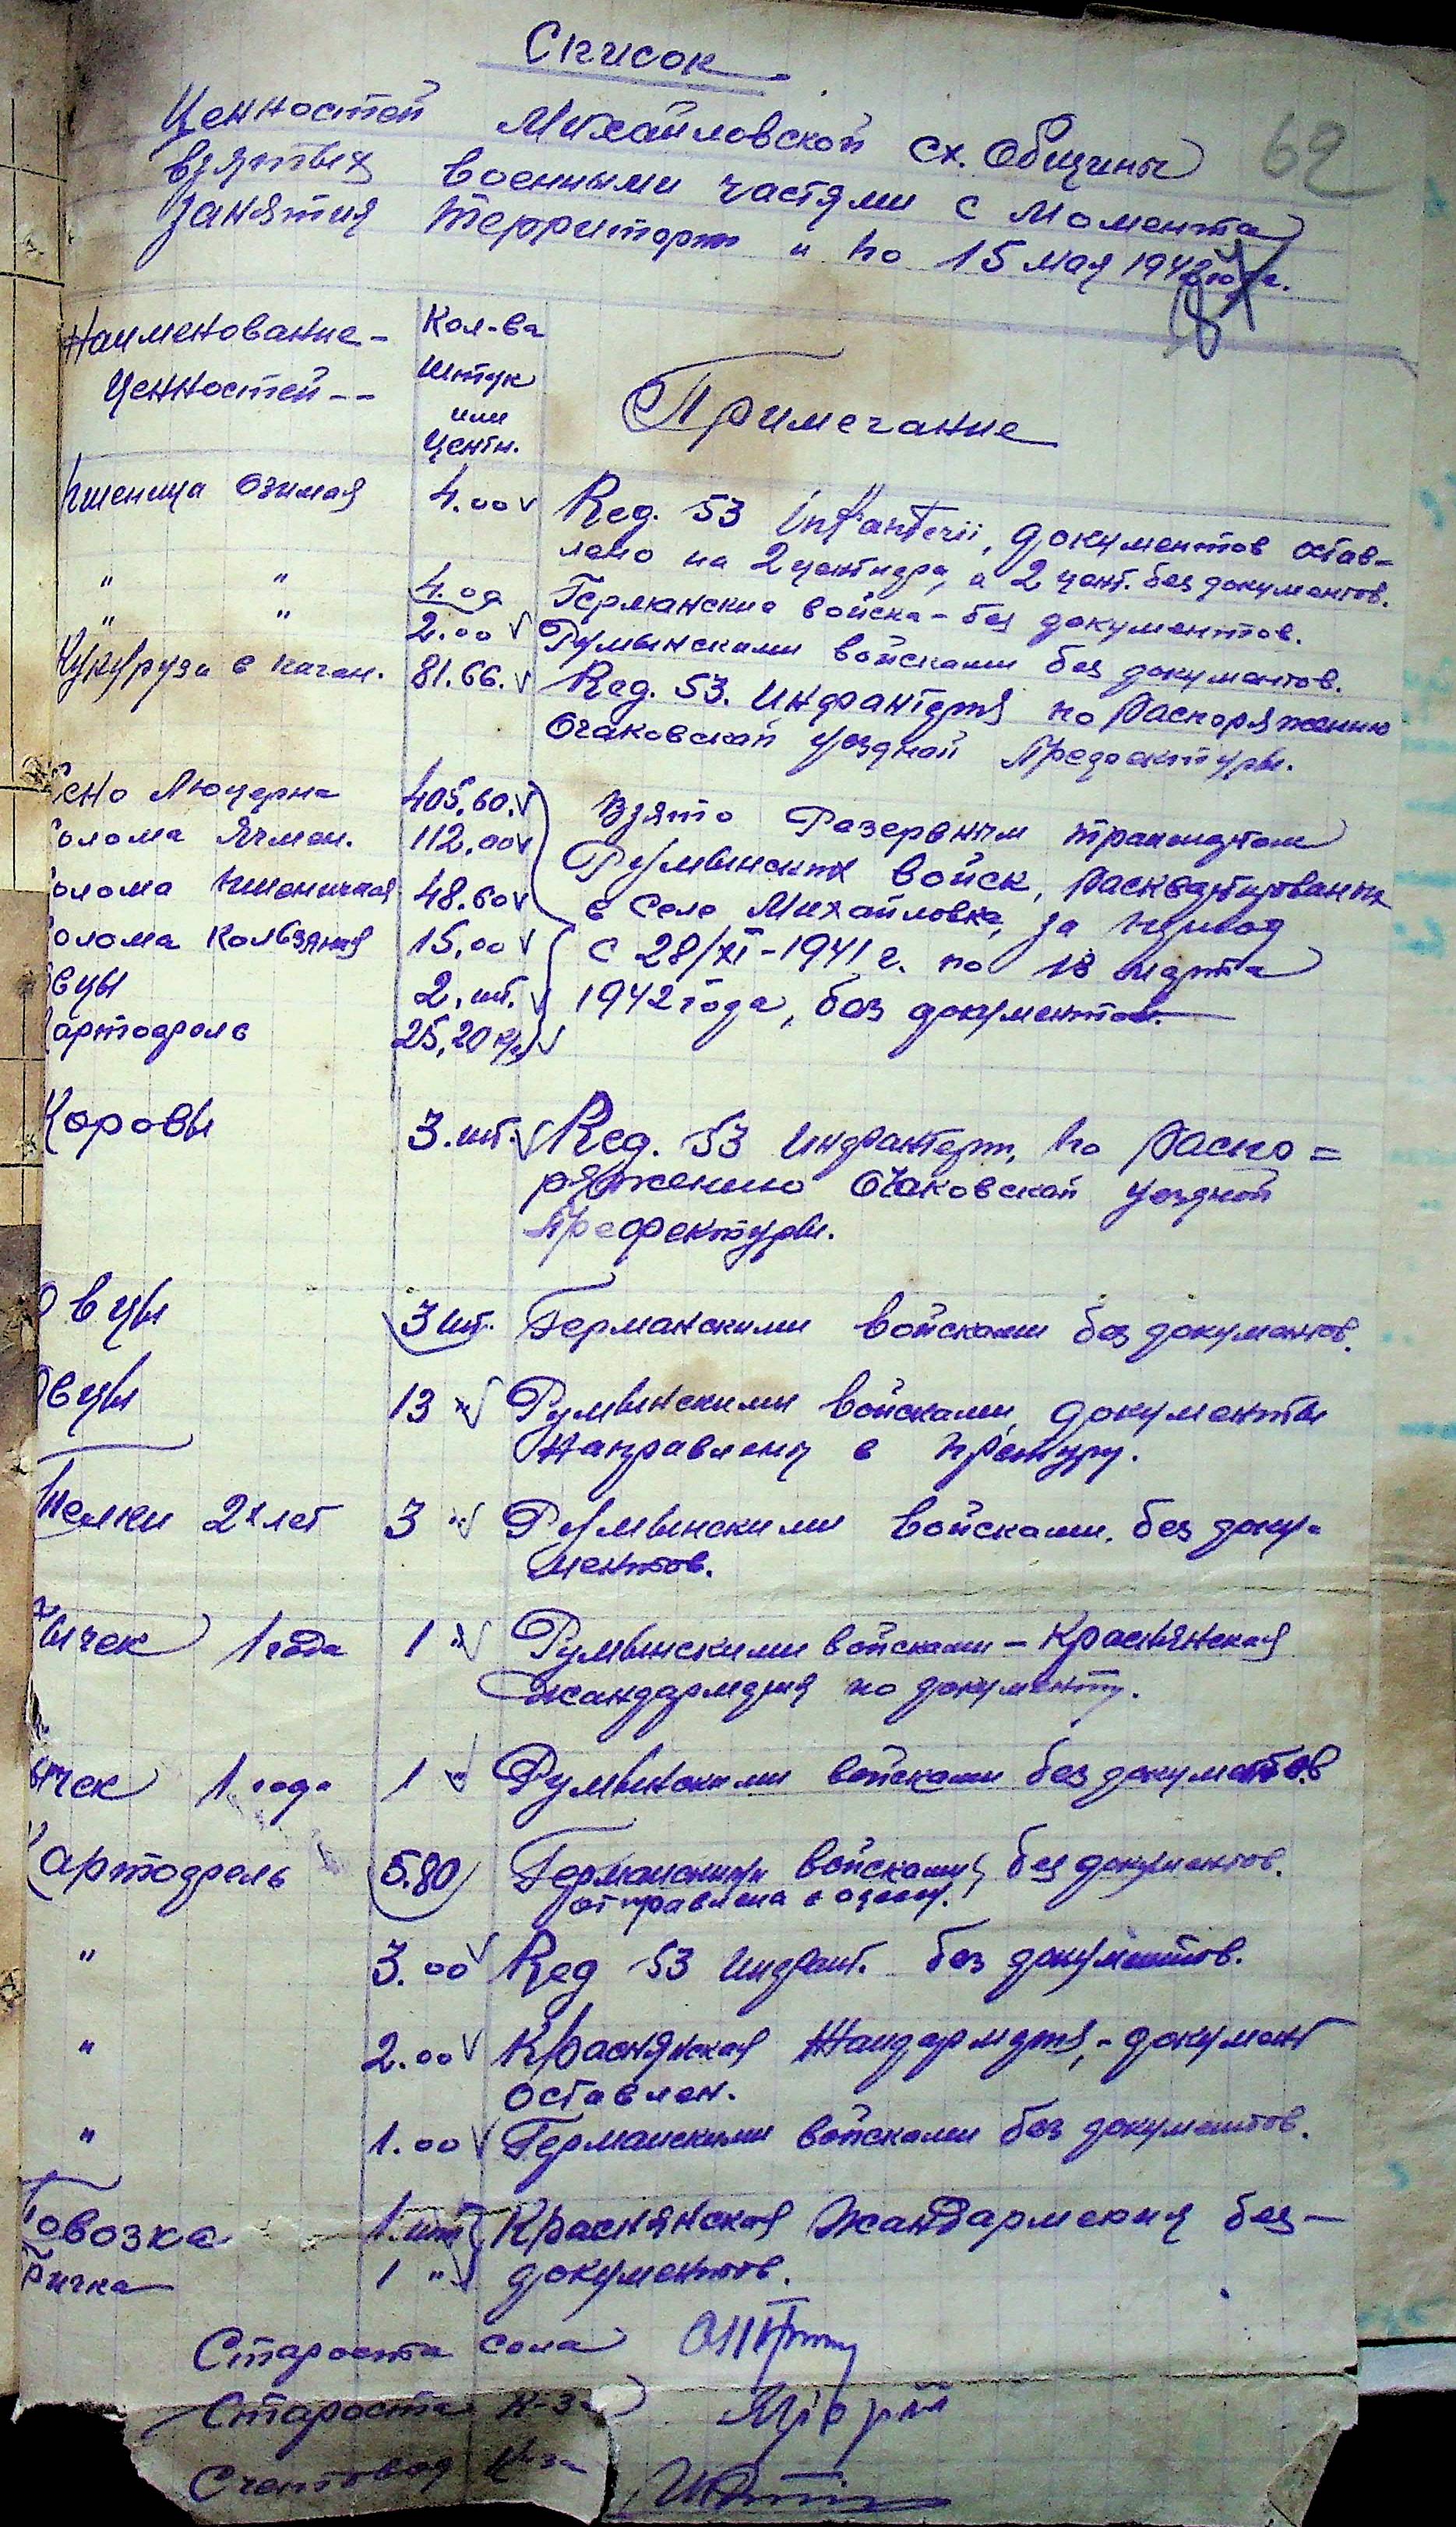 Список
Ценностей Михайловской сх. Общины
69
взятых военными частями с момента
занятия территории и по 15 мая 1942 года.
Наименование - Ценностей --
Кол-ва
штук
или
центн.
Примечание
Пшеница Озимая 4.00 Reg. 53 infanterii, документов остав=
лено на 2 центнера, а 2 цент. без документов.
" " 4.00 Германские войска - без документов.
" " 2.00 Румынскими войсками без документов.
Кукуруза в качан. 81.66. Reg. 53. Инфантерия по Распоряжению
Очаковской уездной Префектуры.
Сено Люцерна 405.60. Взято Резервным транспортом
Солома Ячмен. 112.00 Румынских войск, расквартированных
Солома пшеничная 48.60 в Селе Михайловка, за период
Солома 15.00 с 28/XI-1941 г. по 18 марта
Овцы 2. шт. 1942 года, без документов.
Картофель 25,20
Коровы 3. шт. Reg. 53 Инфантерии, по Распо=
ряжению Очаковской уездной
Префектуры.
Овцы 3 шт. Германскими войсками без документов.
Овцы 13 " Румынскими войсками, документы
направлены в Претуру.
Телки 2х лет 3 " Румынскими войсками, без доку-
ментов.
Бычек 1 года 1 " Румынскими войсками -
жандармерия по документу.
Бычек 1 года 1 " Румынскими войсками без документов
Картофель 5.80 Германскими войсками без документов.
отправлена в одессу.
" 3.00 Reg 53 Инфант. без документов.
" 2.00 Жандармерия, - документ
оставлен.
" 1.00 Германскими войсками без документов.
Повозка 1 шт Жандармерия без-
Бричка 1 " документов.
Староста села
Староста к-за
Счетовод к-за